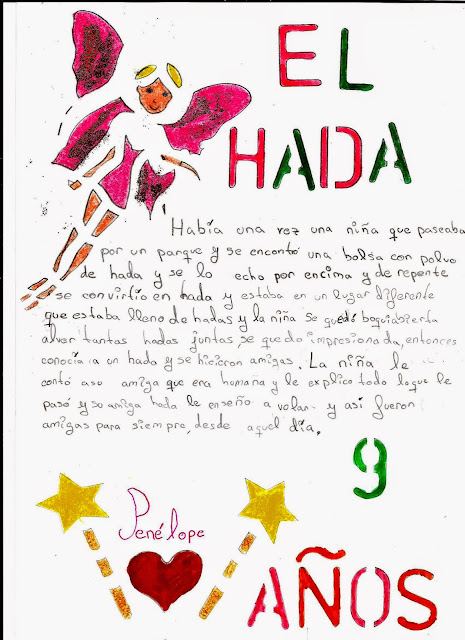 EL
HADA
Había una vez una niña que paseaba
por un parque y se encontó una bolsa con polvo
de hada y se lo echo por encima y de repente
se convirtio en hada y estaba en un lugar diferente
que estaba lleno de hadas y la niña se quedó boquiabierta
alver tantas hadas juntas se quedo impresionada, entonces
conocia a un hada y se hicicron amigas. La niña le
contó asu amiga que era humana y le explico todo loque le
pasó y su amiga hada le enseño a volar y así fueron
amigas para siempre, desde aquel día.
9
Penélope
AÑOS